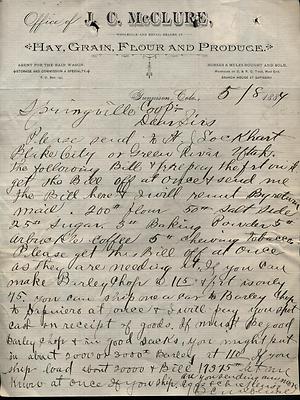 Office of J. C. McCLURE,
WHOLESALE AND RETAIL DEALER IN
HAY, GRAIN, FLOUR AND PRODUCE.
AGENT FOR THE BAIN WAGON
STORAGE AND COMMISSION A SPECIALTY
HORSES & MULES BOUGHT AND SOLD.
Gunnison, Colo. 5/8 1884
Springville Coop
Dear Sirs
Please send
Blake City or Green River Utah.
The following Bill & Prepay the frt on it
get the Bill off at once & send me
the Bill here & I will remit By return
mail. 200# flour 50# Salt Side
25# Sugar 3# Baking Powder 5#
arbuckles coffee 5# chewing tobacco
Please get this Bill off at once
as they are needing it, If you can
make Barley Chop @ 1 15 & frt is only
75, you can ship me a car to Barley Chop
to at once & I will pay you spot
cash on receipt of goods, It must Be good
Barley Chop & in good sacks, you might put
in about 2000 or 3000# Barley at 1 10 If you
ship load about 20000 & Bill let me
know at once If you ship,
J C McClure